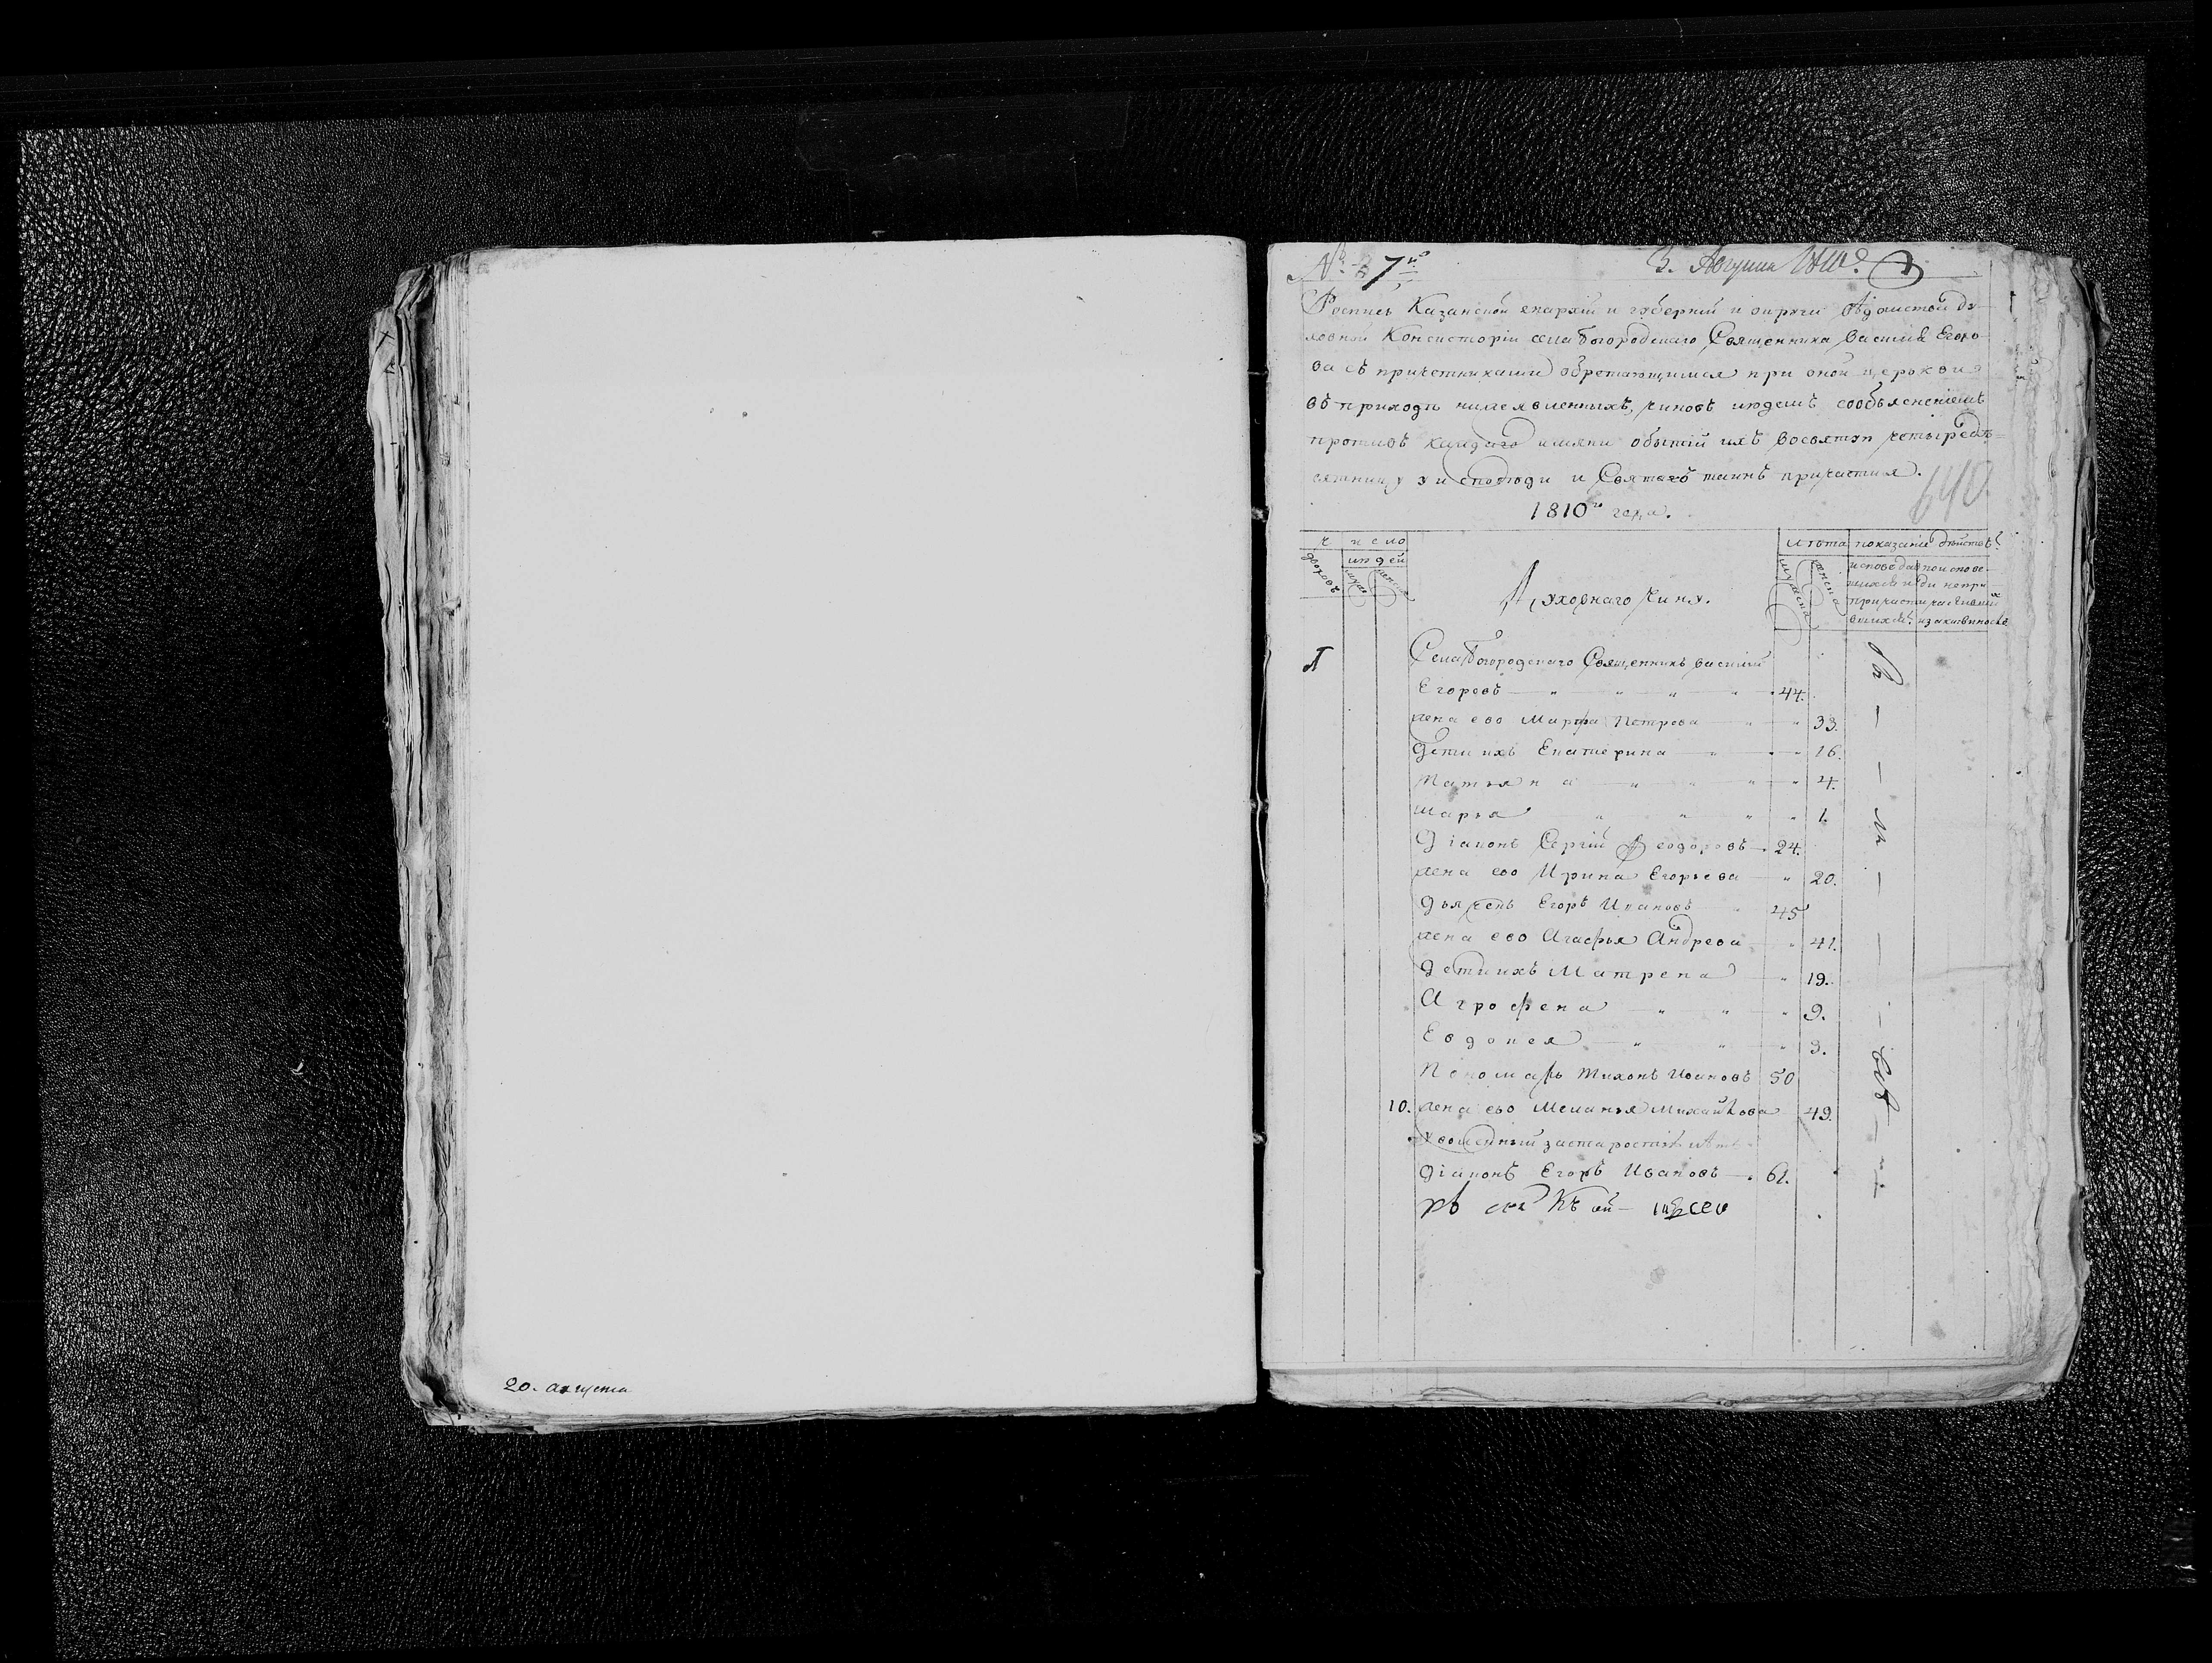 20. августа
№ 7й
3. Августа
Роспись Казанской епархіи и губерніи и округи вѣдомства ду-
ховной Консисторіи села Богородскаго Священника василія Егоро-
ва съ причетниками обретающимися при оной церокви
въ приходѣ нижеявленныхъ, чиновъ людемъ сообъясненіемъ
противъ каждаго имяни обытіи ихъ восвятую четыредѣ=
сятницу у исповѣди и Святаго таинъ причастия.
640
1810го года.
число
дворовъ
людей
мужеска
женска
Духовнаго чину.
лѣта
мужеска
женска
показаніе дѣйствъ
исповѣдав
шихся и
причасти
вшихся.
поиспове-
ди непри
частивших
изакакой виною
1
Села Богородскаго Священникъ василий
Егоровъ 44.
жена ево Марфа Петрова 33.
дети ихъ Екатерина 16.
Татьяна 4.
Марья 1.
Діаконъ Сергій Феодоровъ 24.
жена ево Ирина Егорьева 20.
дьячекъ Егоръ Ивановъ 45
жена ево Агафья Андрева 41.
дети ихъ Матрена 19.
Агрофена 9.
Евдокея 3.
Пономарь Тихонъ Ивановъ 50
10. жена ево Меланья Михайлова 49.
уволенный застаростію
діаконъ Егоръ Ивановъ 61.